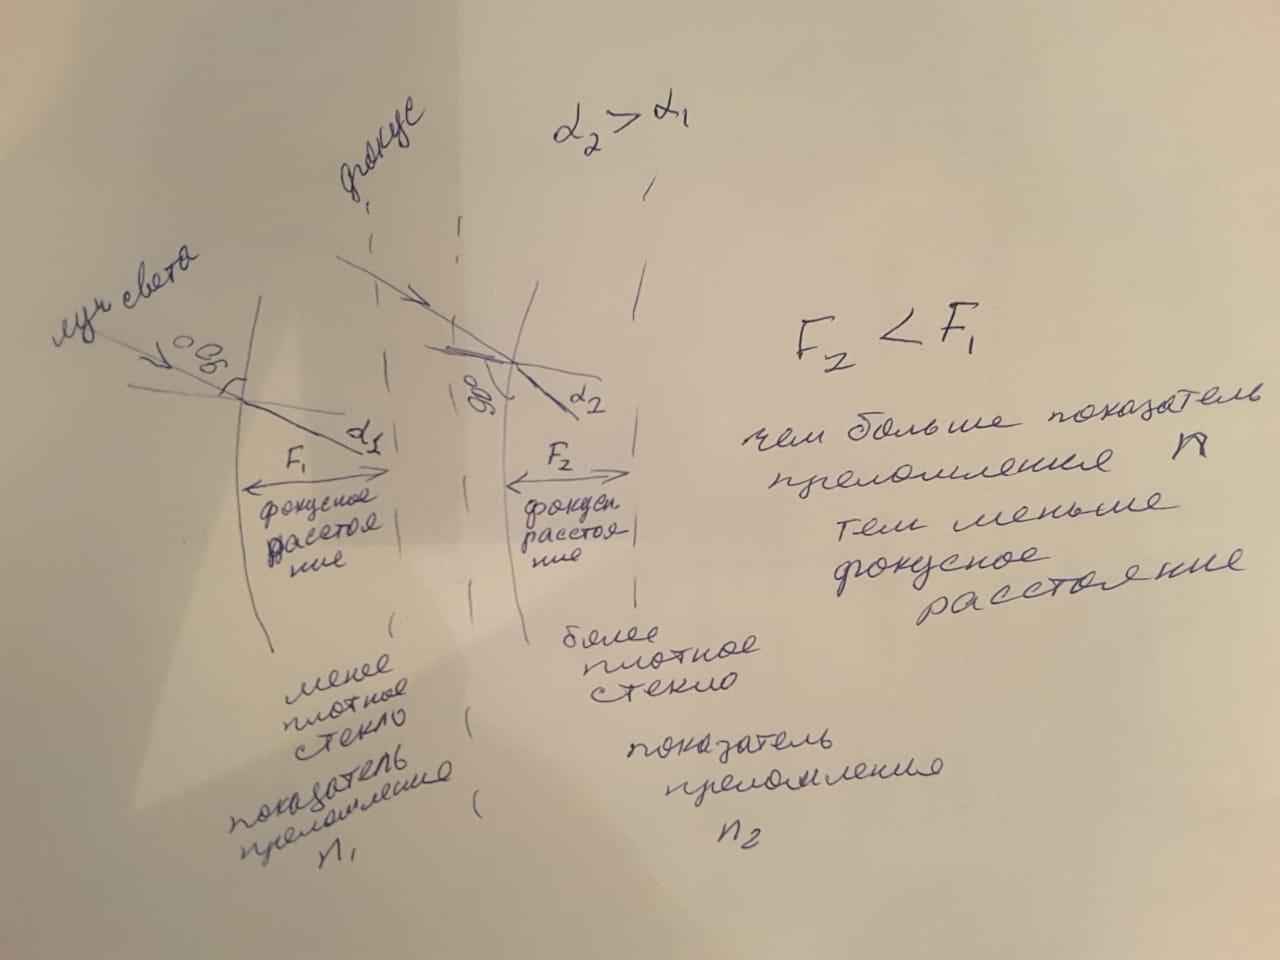 фокус
α₂ > α₁
луч света
90°
90°
α₁
α₂
F₁
фокусное
расстоя
ние
F₂
фокусн.
расстоя-
ние
F₂ < F₁
чем больше показатель
преломления n
тем меньше
фокусное
расстояние
менее
плотное
стекло
показатель
преломления
n₁
более
плотное
стекло
показатель
преломления
n₂